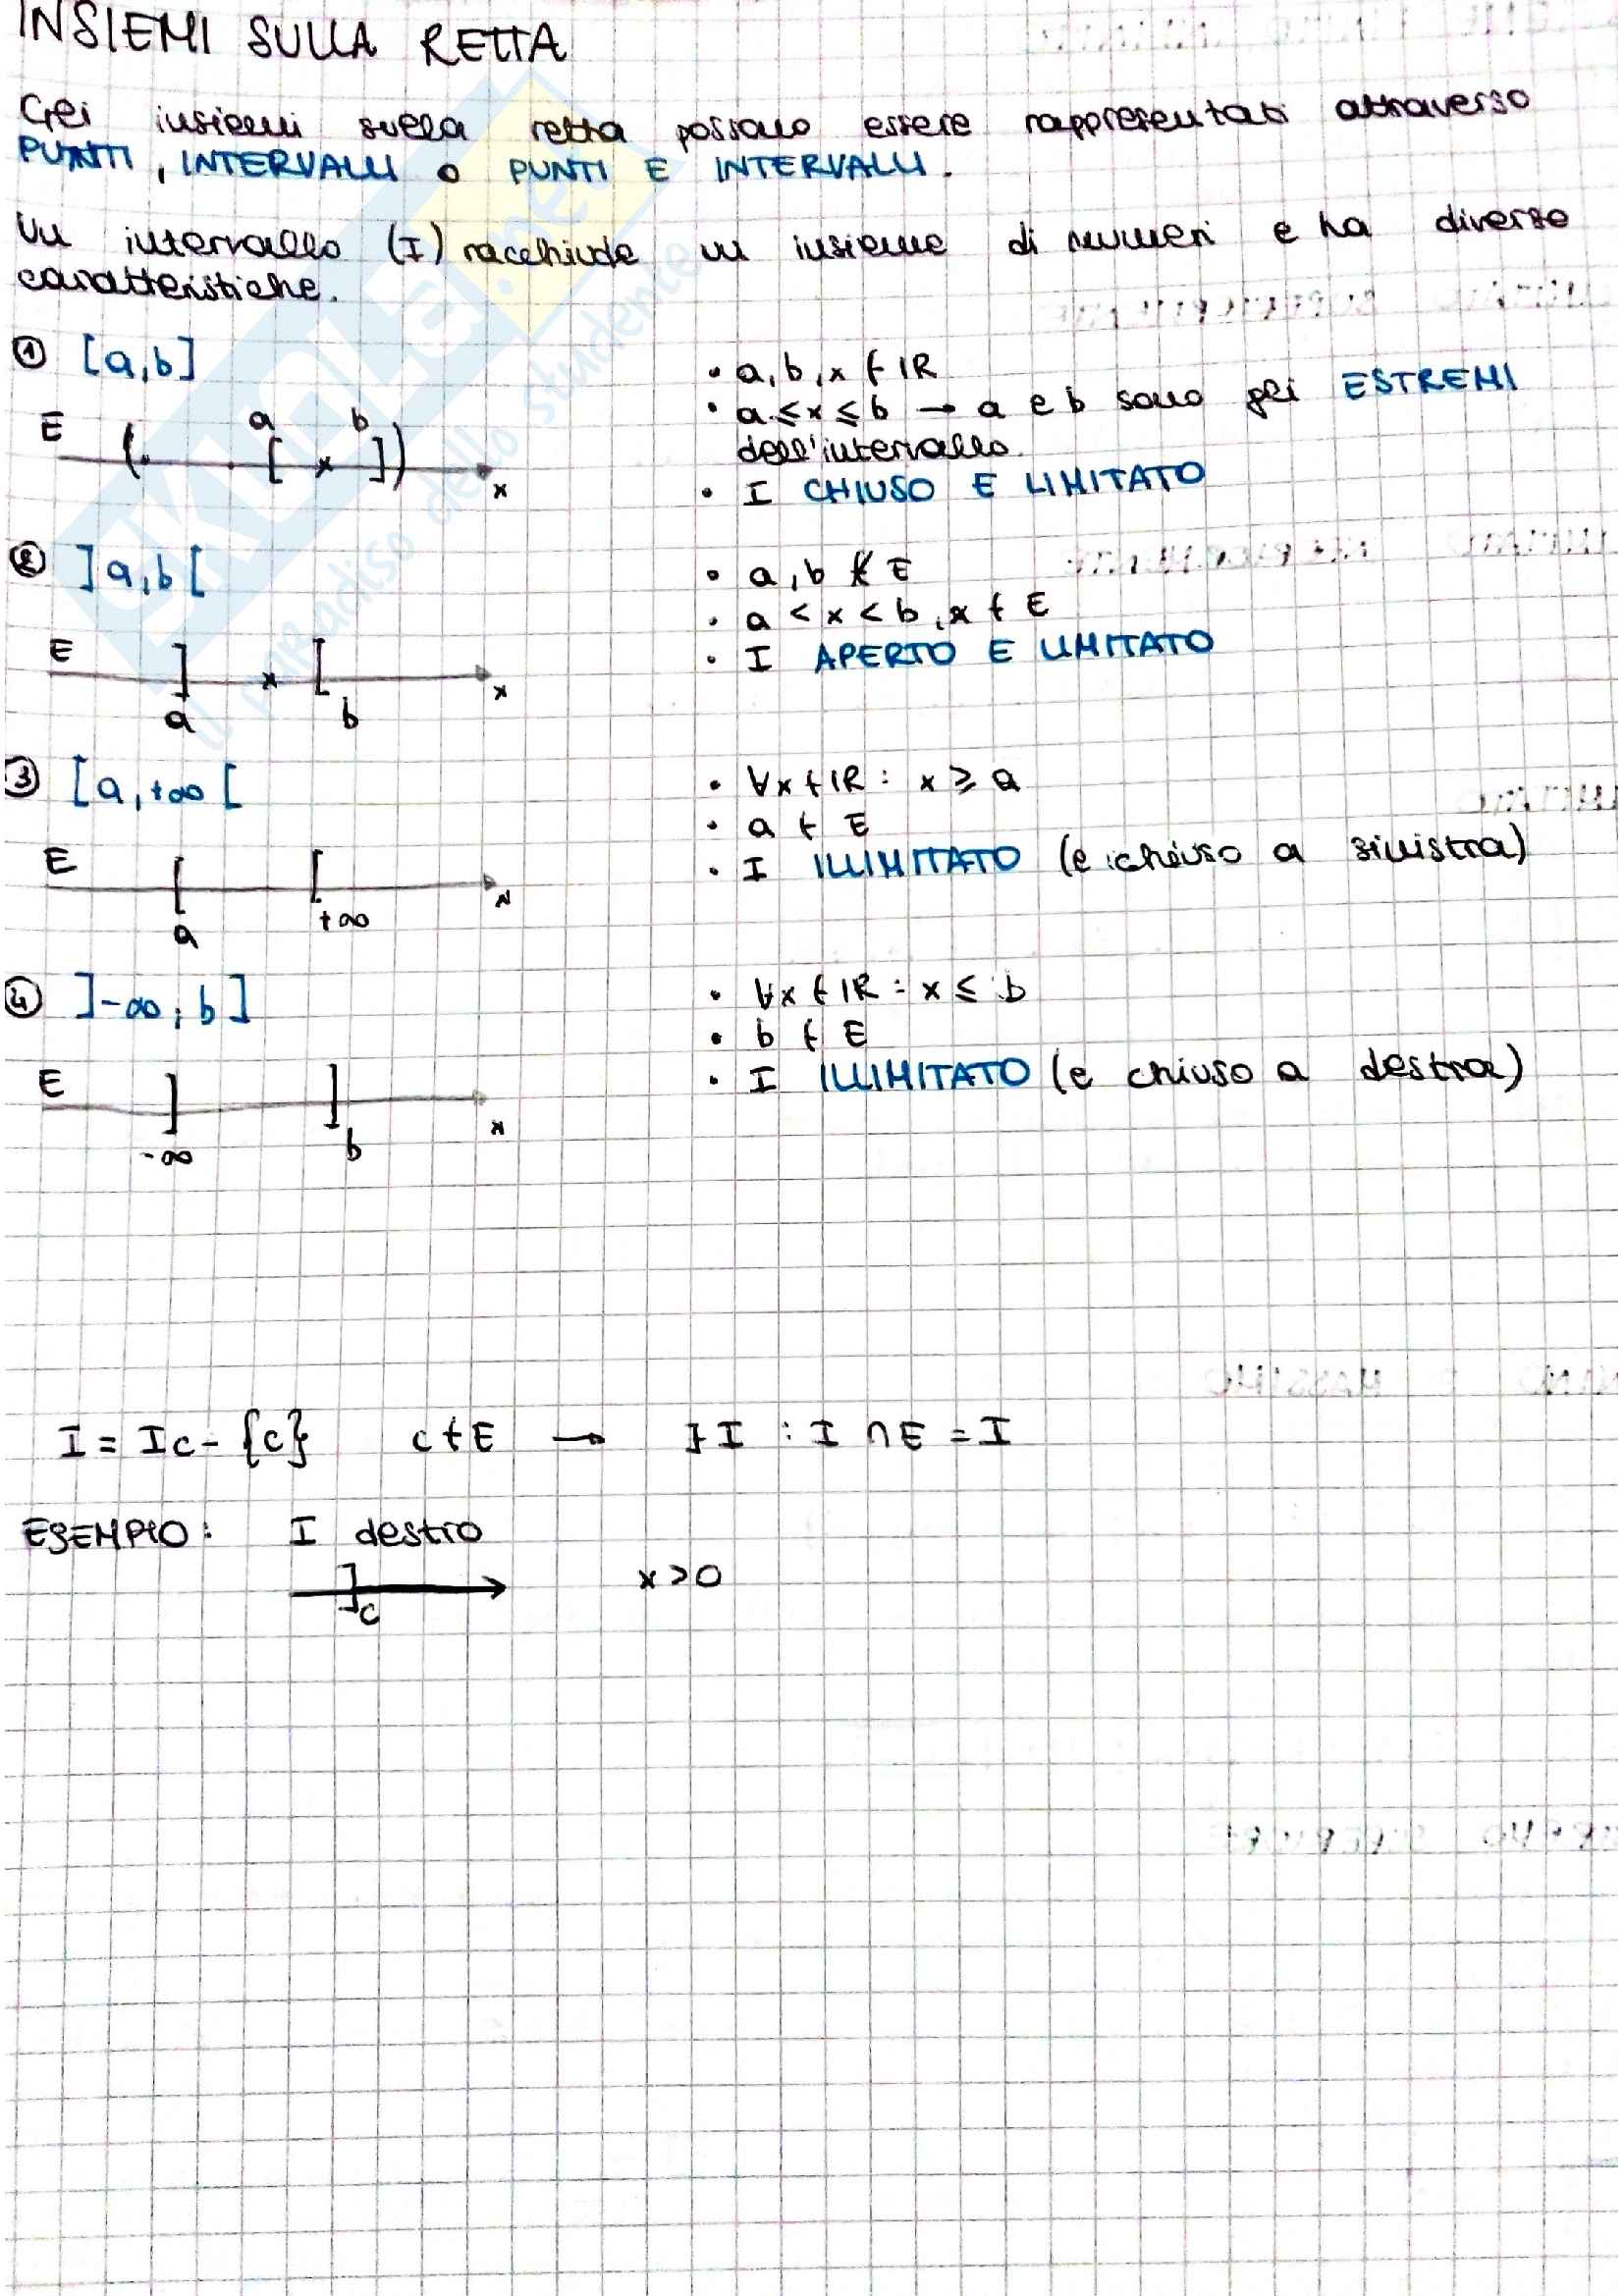 INSIEMI SULLA RETTA
Gli insiemi sulla retta possono essere rappresentati attraverso
PUNTI, INTERVALLI o PUNTI E INTERVALLI.
Un intervallo (I) racchiude un insieme di numeri e ha diverse
caratteristiche.
① [a,b]
• a,b,x ∈ IR
E a b x
• a ≤ x ≤ b → a e b sono gli ESTREMI
dell'intervallo.
[ x ]
• I CHIUSO E LIMITATO
② ]a,b[
• a,b ∉ E
• a < x < b, x ∈ E
E ] x [ x
• I APERTO E LIMITATO
a b
③ [a,+∞[
• ∀x ∈ IR : x ≥ a
• a ∈ E
E [ [ x
• I ILLIMITATO (e chiuso a sinistra)
a +∞
④ ]-∞, b]
• ∀x ∈ IR : x ≤ b
• b ∈ E
E ] ] x
• I ILLIMITATO (e chiuso a destra)
-∞ b
I = Ic - {c} c ∈ E → ∃ I : I ∩ E = I
ESEMPIO: I destro
] c x > 0
SKUOLA.net
il paradiso dello studente